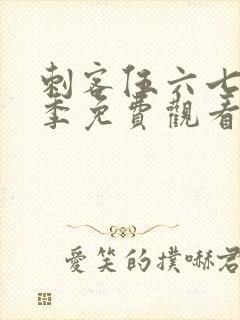 刺客伍六七
季免費觀看
愛笑的撲嚇君